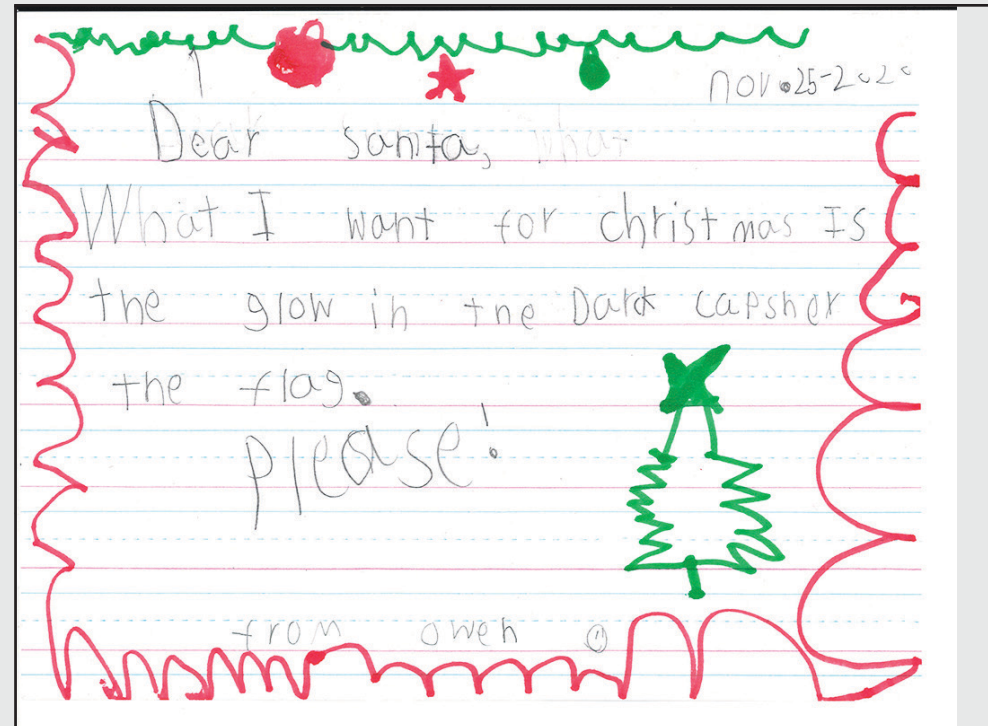 nov.25-2020
Dear santa, what
What I want for christmas Is
the glow in the Dark capsher
the flag.
please!
from owen